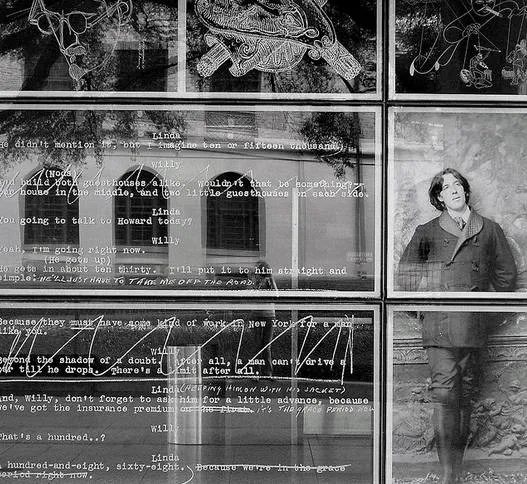 Linda
he didn't mention it, but I imagine ten or fifteen thousand,
Willy
(Nods)
and build both guesthouses alike. Wouldn't that be something--
our house in the middle, and two little guesthouses on each side.
Linda
You going to talk to Howard today?
Willy
Yeah. I'm going right now.
(He gets up)
He gets in about ten thirty. I'll put it to him straight and
simple: HE'LL JUST HAVE TO TAKE ME OFF THE ROAD.
Because they must have some kind of work in New York for a man
like you.
Willy
Beyond the shadow of a doubt. After all, a man can't drive a
car till he drops. There's a limit after all.
Linda (HELPING HIM ON WITH HIS JACKET)
And, Willy, don't forget to ask him for a little advance, because
we've got the insurance premium IT'S THE GRACE PERIOD NOW
Willy
What's a hundred..?
Linda
A hundred-and-eight, sixty-eight. Because we're in the grace
period right now.